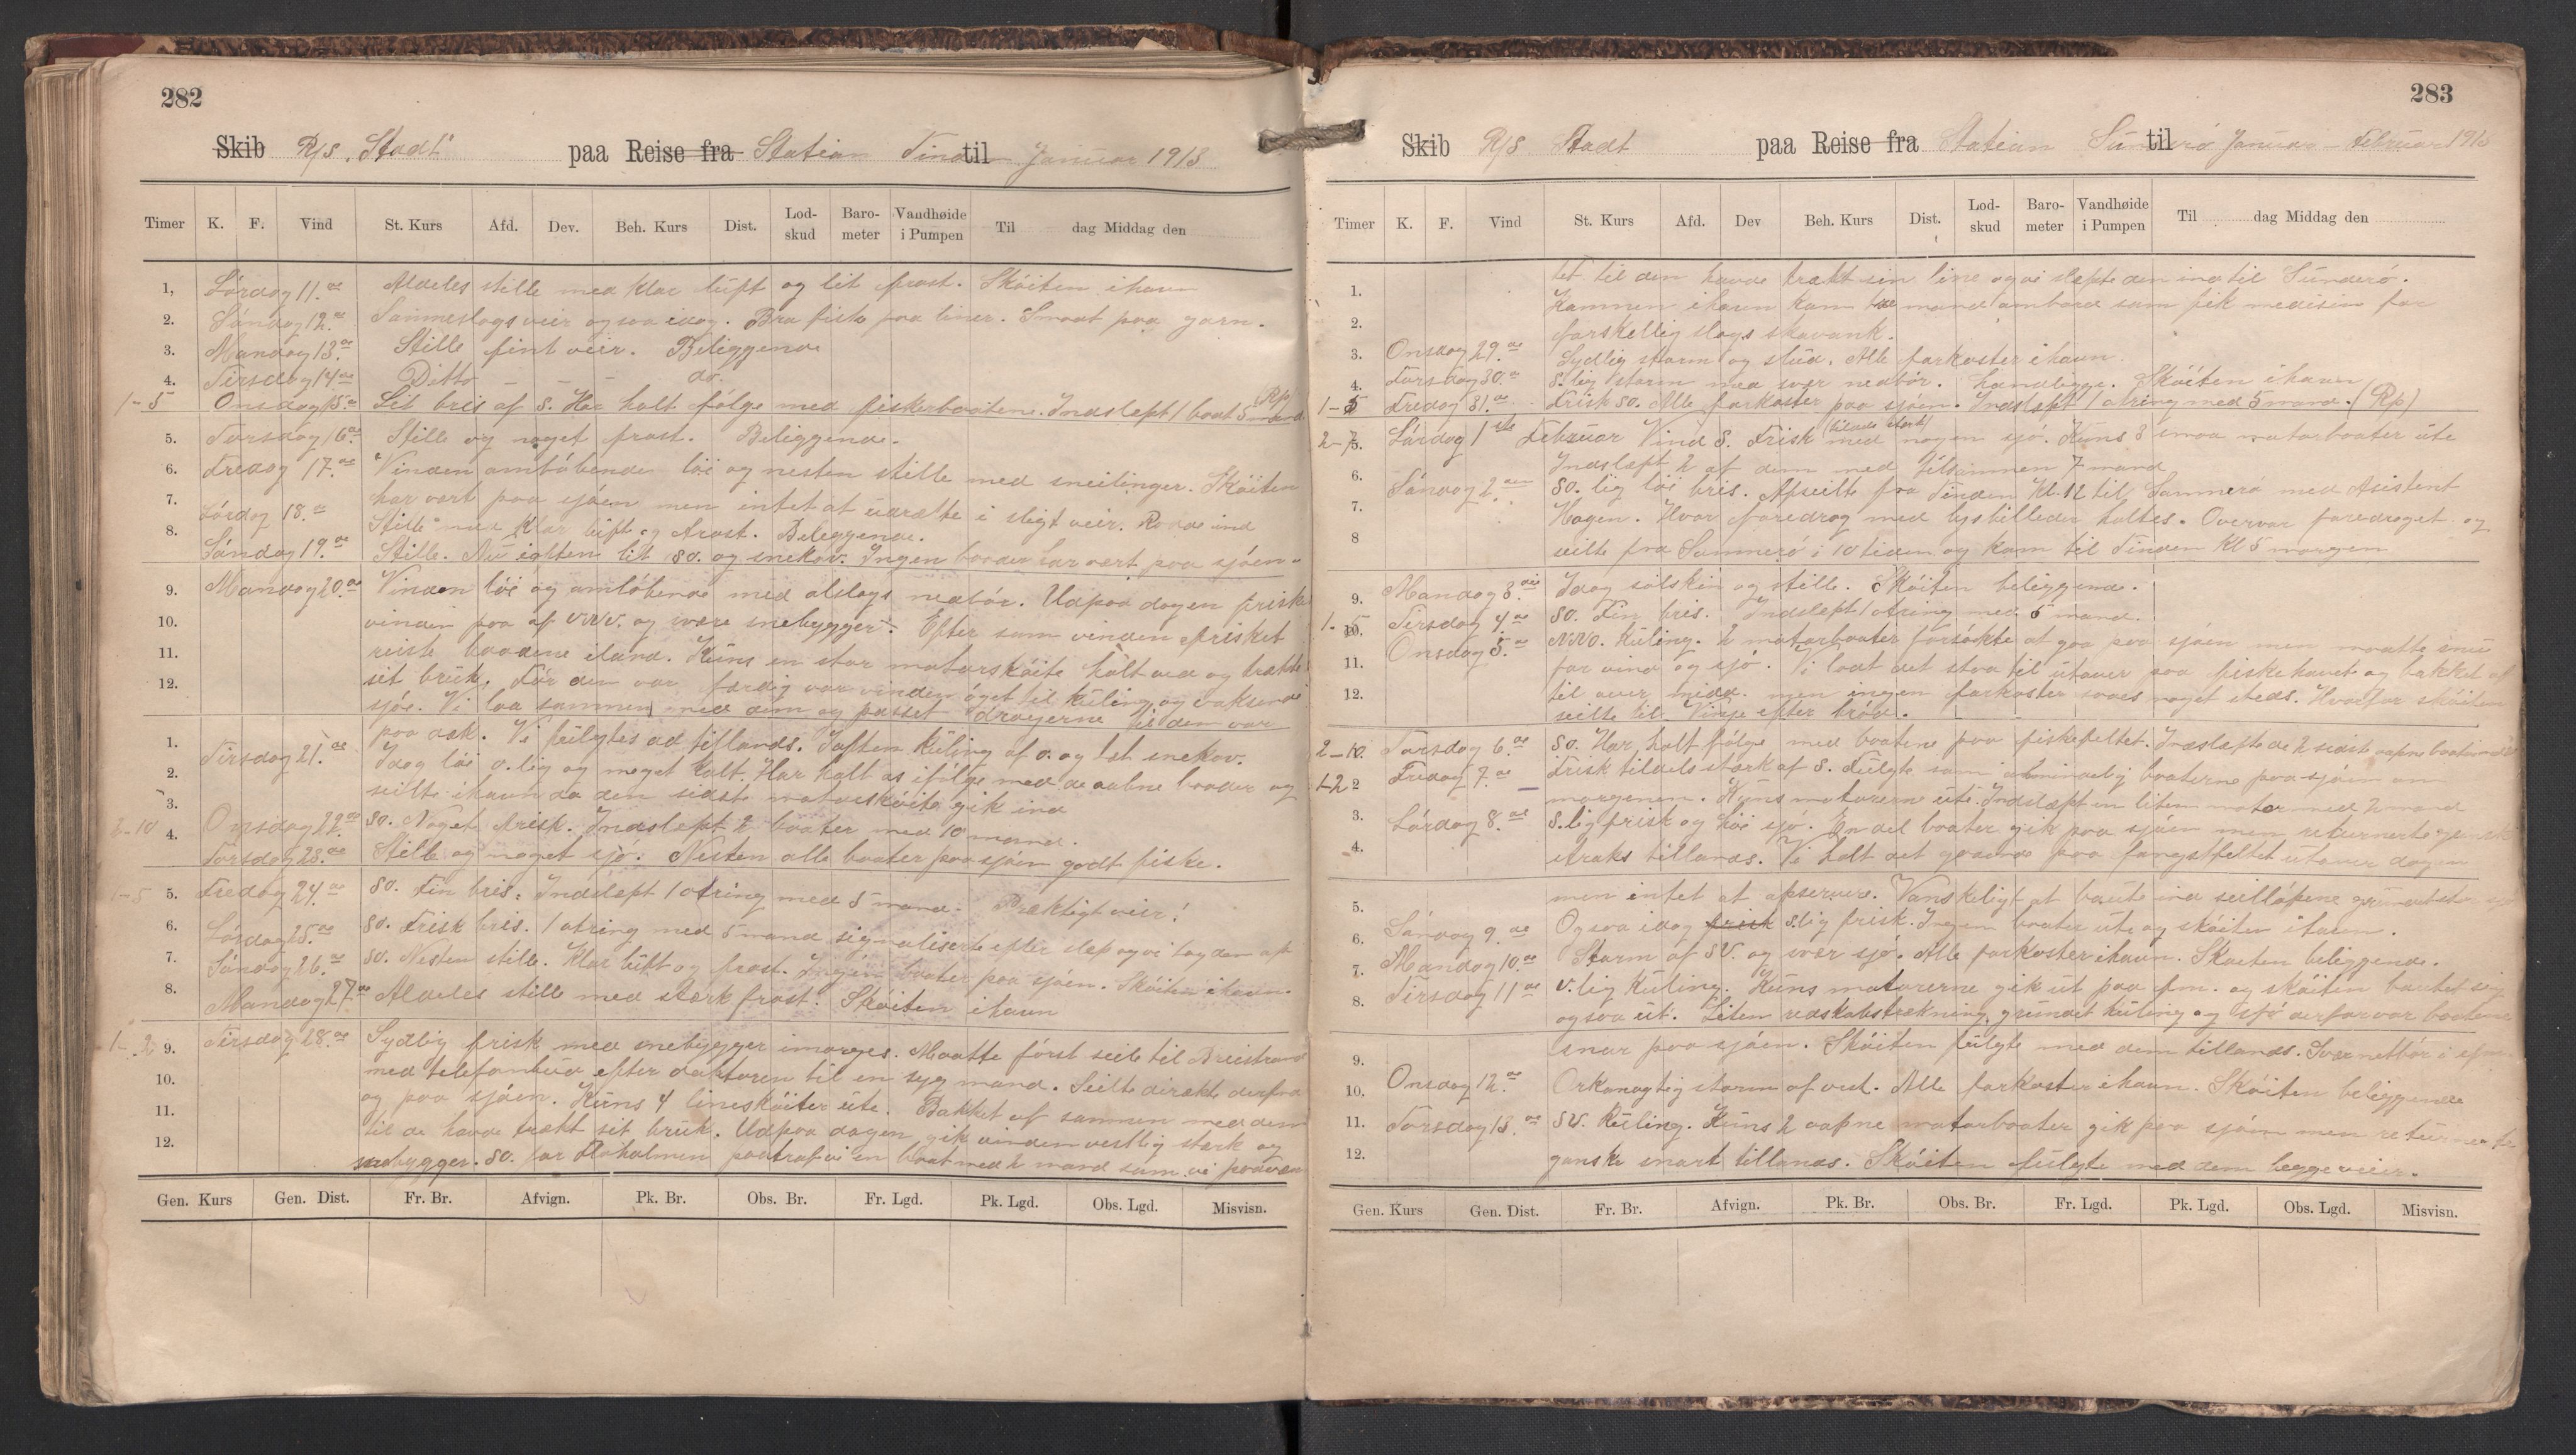 282
Skib R/S. "Stadt" paa Reise fra Station Tind til Januar 1913
Timer K. F. Vind St. Kurs Afd. Dev. Beh. Kurs Dist. Lod-skud Baro-meter Vandhøide i Pumpen Til dag Middag den
1, Lördag 11.de Aldeles stille med klar luft og lit frost. Sköiten ihavn
2. Söndag 12.de Sammeslags veir ogsaa idag. Bra fiske paa liner. Smaat paa garn.
3. Mandag 13.de Stille fint veir. Beliggende
4. Tirsdag 14de Ditto do.
1-5 Onsdag 15.de Lit bris af S. Har holt fölge med fiskerbaatene. Indslept 1 baat 5 mand (Rp)
5. Torsdag 16.de Stille og noget frost. Beliggende.
6. Fredag 17.de Vinden omlöbende löi og nesten stille med sneilinger. Sköiten
7. har vært paa sjöen men intet at udrette i sligt veir. Roade ind
8. Lördag 18.de Stille med klar luft og frost. Beleggende.
Söndag 19.de Stille. Nu iaften lit SO. og snekov. Ingen baader har vært paa sjöen.
9. Mandag 20.de Vinden löi og omlöbende med alslags nedbör. Udpaa dagen friske
10. vinden paa af VNV. og svære snebygger. Efter som vinden frisket
11. reiste baadene iland. Kuns en stor motorsköite holt ved og trækte
12. sit bruk. För den var færdig var vinden öget til kuling og voksende
sjöe. Vi laa sammen med dem og passet dragerne til den var
1. paa dæk. Vi fulgtes ad tillands. Iaften kuling af O. og tæt snekov.
2. Tirsdag 21.de Idag löi O.lig og meget kalt. Har holt os ifölge med de aabne baader og
3. seilte ihavn da den sidste motorsköite gik ind
2-10 4. Onsdag 22.de SO. Noget frisk. Indslept 2 baater med 10 mand.
Torsdag 23.de Stille og noget sjö. Nesten alle baater paa sjöen godt fiske.
1-5 5. Fredag 24.de SO. Fin bris. Indslept 1 otring med 5 mand. Præktigt veir!
6. Lördag 25.de SO. Frisk bris. 1 otring med 5 mand signaliserte efter slep og vi tog den op
7. Söndag 26.de SO. Nesten stille. Klar luft og frost. Ingen baater paa sjöen. Sköiten ihavn.
8. Mandag 27.de Aldeles stille med stærk frost. Sköiten ihavn
1-2 9. Tirsdag 28.de Sydlig frisk med snebygger imorges. Maatte först seile til Breistrand
10. med telefonbud efter doktoren til en syg mand. Seilte dirækte derfra
11. og paa sjöen. Kuns 4 linesköiter ute. Bakket af sammen med dem
12. til de havde trækt sit bruk. Udpaa dagen gik vinden vestlig stærk og
snebygger. SO. for Floholmen paatraf vi en baat med 2 mand som vi
Gen. Kurs Gen. Dist. Fr. Br. Afvign. Pk. Br. Obs. Br. Fr. Lgd. Pk. Lgd. Obs. Lgd. Misvisn.
283
Skib R/S Stadt paa Reise fra Station til Januar - Februar 1913
Timer K. F. Vind St. Kurs Afd. Dev Beh. Kurs Dist. Lod-skud Baro-meter Vandhøide i Pumpen Til dag Middag den
1. tet til den havde trækt sin line og vi slepte den ind til Sunderö.
2. Kommen ihavn kom mand ombord som fik medisin for
forskellig slags skavank.
3. Onsdag 29.de Sydlig storm og slud. Alle farkoster ihavn.
4. Torsdag 30.de S.lig storm med svær nedbör. Landligge. Sköiten ihavn
1-5 Fredag 31.de Frisk SO. Alle farkoster paa sjöen. Indslept 1 otring med 5 mand. (Rp)
2-7 5. Lördag 1ste Februar Vind S. Frisk (tildels stærk) med nogen sjö. Kuns 3 smaa motorbaater ute
6. Indslept 2 af dem med tilsammen 7 mand
7. Söndag 2.den SO. lig löi bris. Afseilte fra Tinden Kl. 12 til Sommerö med Asistent
Hagen. Hvor foredrag med lystilleder holtes. Overvar foredraget og
8 seilte fra Sommerö i 10 tiden og kom til Tinden Kl 5 morgen
9. Mandag 3.die Idag solskin og stille. Sköiten beliggende.
1-5 10. Tirsdag 4de SO. Fin bris. Indslept 1 otring med 5 mand.
11. Onsdag 5.de NNO. Kuling. 2 motorbaater forsökte at gaa paa sjöen men maatte snu
for vind og sjö. Vi lodt det staa til utover paa fiskehavet og bakket af
12. til over midd. men ingen farkoster saaes noget steds. Hvorfor sköiten
seilte til Vinje efter
2-10 Torsdag 6.de SO. Har holt fölge med baatene paa fiskefeltet. Indslepte de 2 sidste aapne baater
1-2 2 Fredag 7.de Frisk tildels stærk af S. Fulgte som almindelig baaterne paa sjöen om
morgenen. Kuns motorerne ute. Indslept en liten motor med 2 mand
3. Lördag 8.de S.lig frisk og höi sjö. En del baater gik paa sjöen men returnerte
4. straks tillands. Vi holt det gaaende paa fangstfeltet utover dagen
5. men intet at observere. Vanskeligt at baute ind seillöpene grundet stor sjö
6. Söndag 9.de Ogsaa idag frisk S.lig frisk. Ingen baater ute og sköiten ihavn.
7. Mandag 10.de Storm af SV. og svær sjö. Alle farkoster ihavn. Skoeten beliggende.
8. Tirsdag 11de V.lig kuling. Kuns motorerne gik ut paa fm. og sköiten bautet sig
ogsaa ut. Liten redskabstrækning, grundet kuling og sjö derfor var baatene
9. snar paa sjöen. Sköiten fulgte med dem tillands. Svær nettbör i
10. Onsdag 12.de Orkanagtig storm af vest. Alle farkoster ihavn. Sköiten beliggende
11. Torsdag 13.de SV. Kuling. Kuns 2 aapne motorbaater gik paa sjöen men returnerte
12. ganske snart tillands. Sköiten fulgte med dem begge veier.
Gen. Kurs Gen. Dist. Fr. Br. Afvign. Pk. Br. Obs. Br. Fr. Lgd. Pk. Lgd. Obs. Lgd. Misvisn.